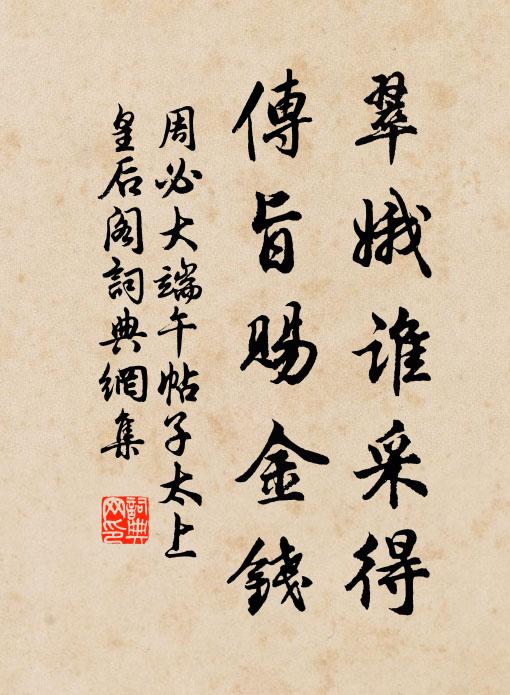 翠娥谁采得
傳旨賜金錢
周必大端午帖子太上
皇后阁詞典網集
詞典网印